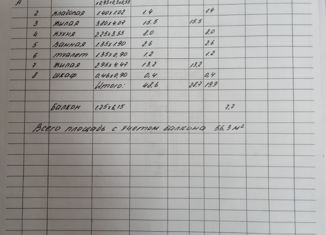 А
2 Кладовая 1.40х1.02 1.4 1.4
3 Жилая 3.80х4.07 15.5 15.5
4 Кухня 2.25х3.55 8.0 8.0
5 Ванная 1.35х1.90 2.6 2.6
6 Туалет 1.35х0.90 1.2 1.2
7 Жилая 2.96х4.47 13.2 13.2
8 шкаф 0.46х0.90 0.4 0.4
Итого: 48.6 28.7 19.9
Балкон 1.25х6.15 7.7
Всего площадь с учетом балкона 56.3 м²